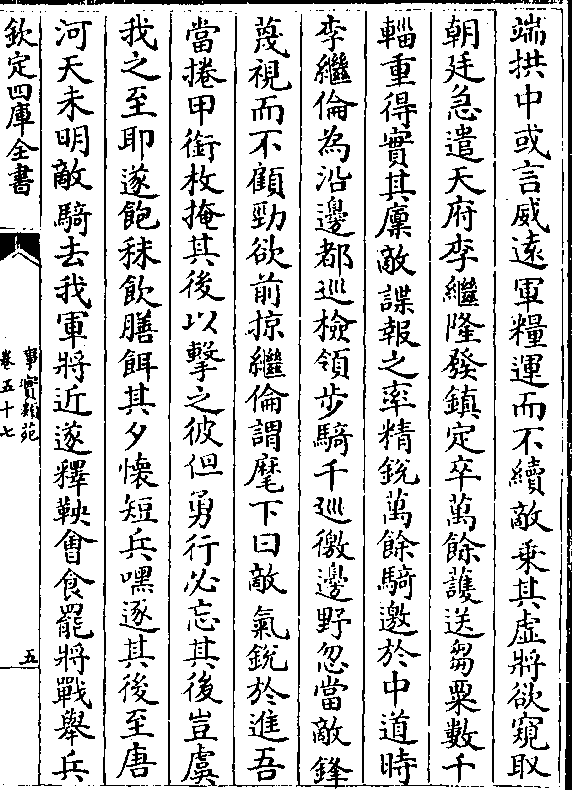 端拱中或言威遠軍糧運而不續敵乗其虚將欲窺取
朝廷急遣天府李繼隆發鎮定卒萬餘護送芻粟數千
輜重得實其廩敵諜報之率精鋭萬餘騎邀於中道時
李繼倫為沿邊都巡檢領步騎千巡徼邊野忽當敵鋒
蔑視而不顧勁欲前掠繼倫謂麾下曰敵氣鋭於進吾
當捲甲銜枚掩其後以擊之彼但勇行必忘其後豈虞
我之至耶遂飽秣飲膳餌其夕懐短兵嘿逐其後至唐
河天未明敵騎去我軍將近遂釋鞅會食罷將戰舉兵
欽定四庫全書
事實類苑
卷五十七
五